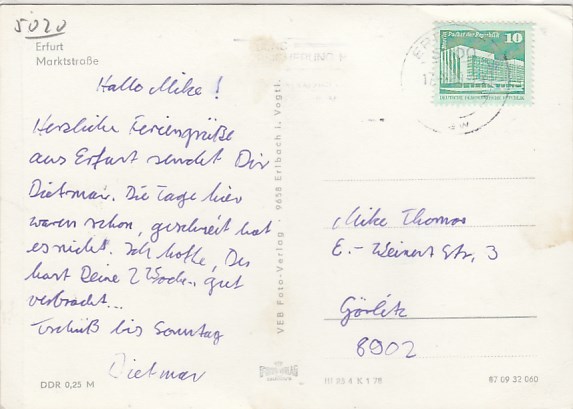 5020
Erfurt
Marktstraße
Hallo Mike!
Herzliche Feriengrüße
aus Erfurt sendet Dir
Dietmar. Die Tage hier
waren schon, geschneit hat
es nicht. Ich hoffe, Du
hast Deine 2 Woch. gut
verbracht...
Tschüß bis Sonntag
Dietmar
DDR 0,25 M
VEB Foto-Verlag · 9658 Erlbach i. Vogtl.
Palast der Republik
10
DEUTSCHE DEMOKRATISCHE REPUBLIK
Mike Thomas
E.-Weinert Str. 3
Görlitz
8902
III 26 4 K 1 78
87 09 32 060